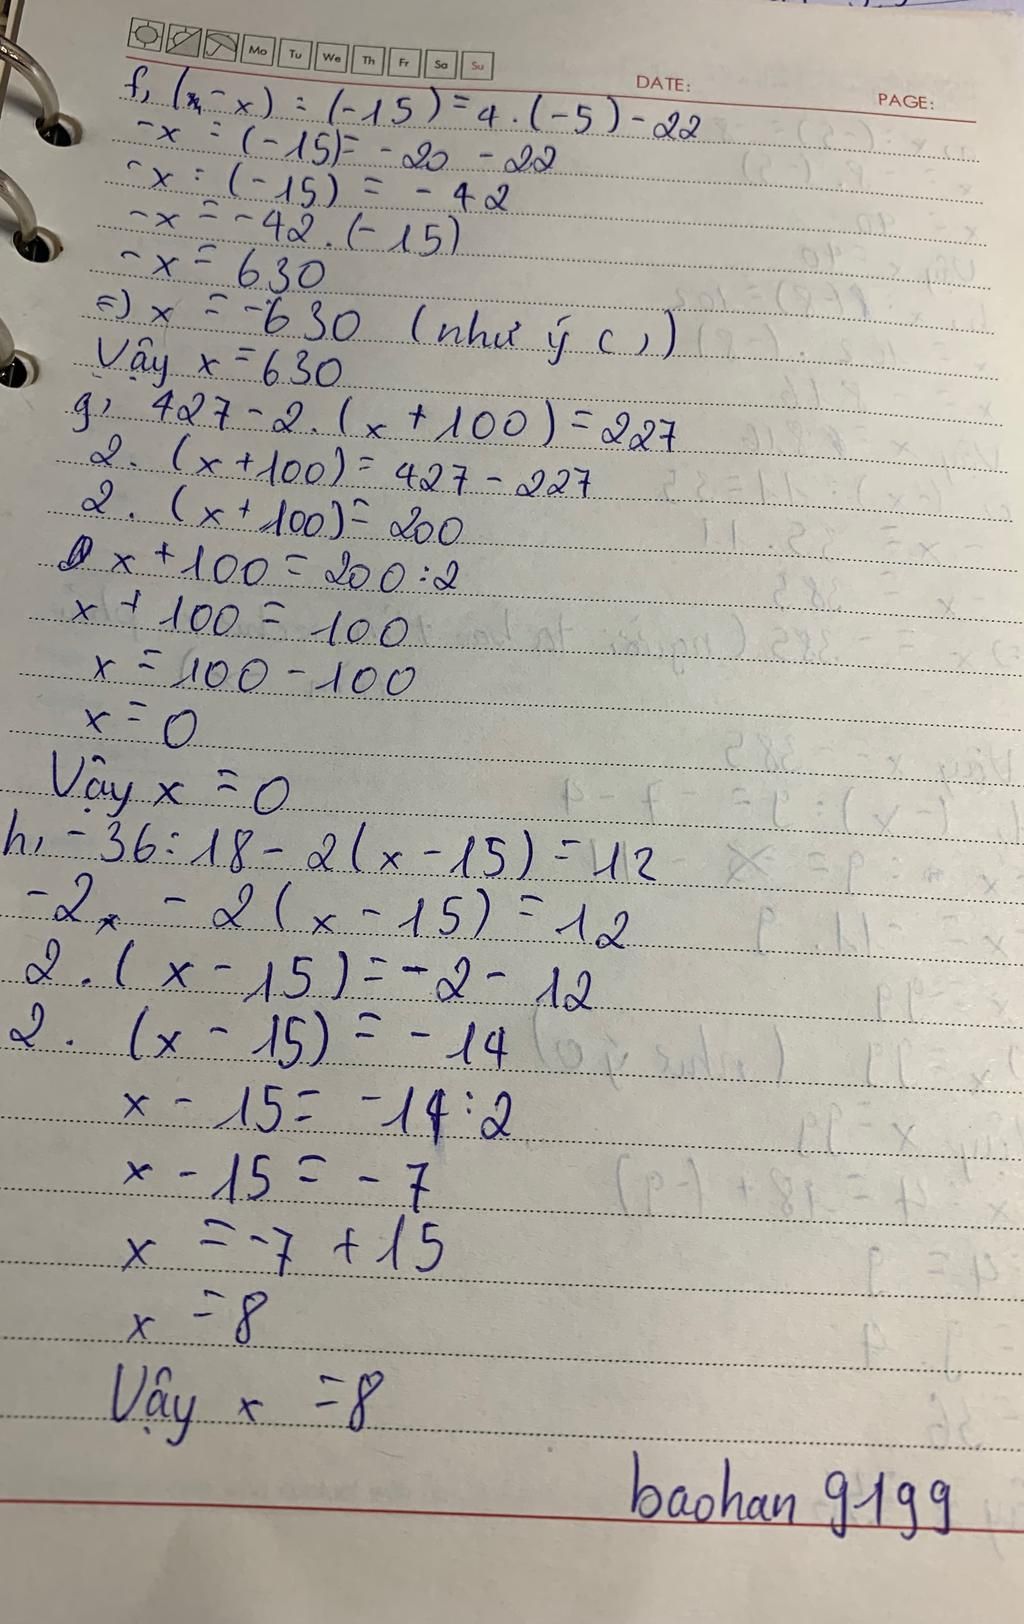 Mo Tu We Th Fr Sa Su
DATE:
PAGE:
f, (-x) : (-15) = 4 . (-5) - 22
-x : (-15) = -20 - 22
-x : (-15) = -42
-x = -42 . (-15)
-x = 630
=) x = -630 (như ý c,)
Vậy x = 630
g, 427 - 2 . (x + 100) = 227
2 . (x + 100) = 427 - 227
2 . (x + 100) = 200
x + 100 = 200 : 2
x + 100 = 100
x = 100 - 100
x = 0
Vậy x = 0
h, -36 : 18 - 2 (x - 15) = 12
-2 - 2 (x - 15) = 12
2 . (x - 15) = -2 - 12
2 . (x - 15) = -14
x - 15 = -14 : 2
x - 15 = -7
x = -7 + 15
x = 8
Vậy x = 8
baohan 9199